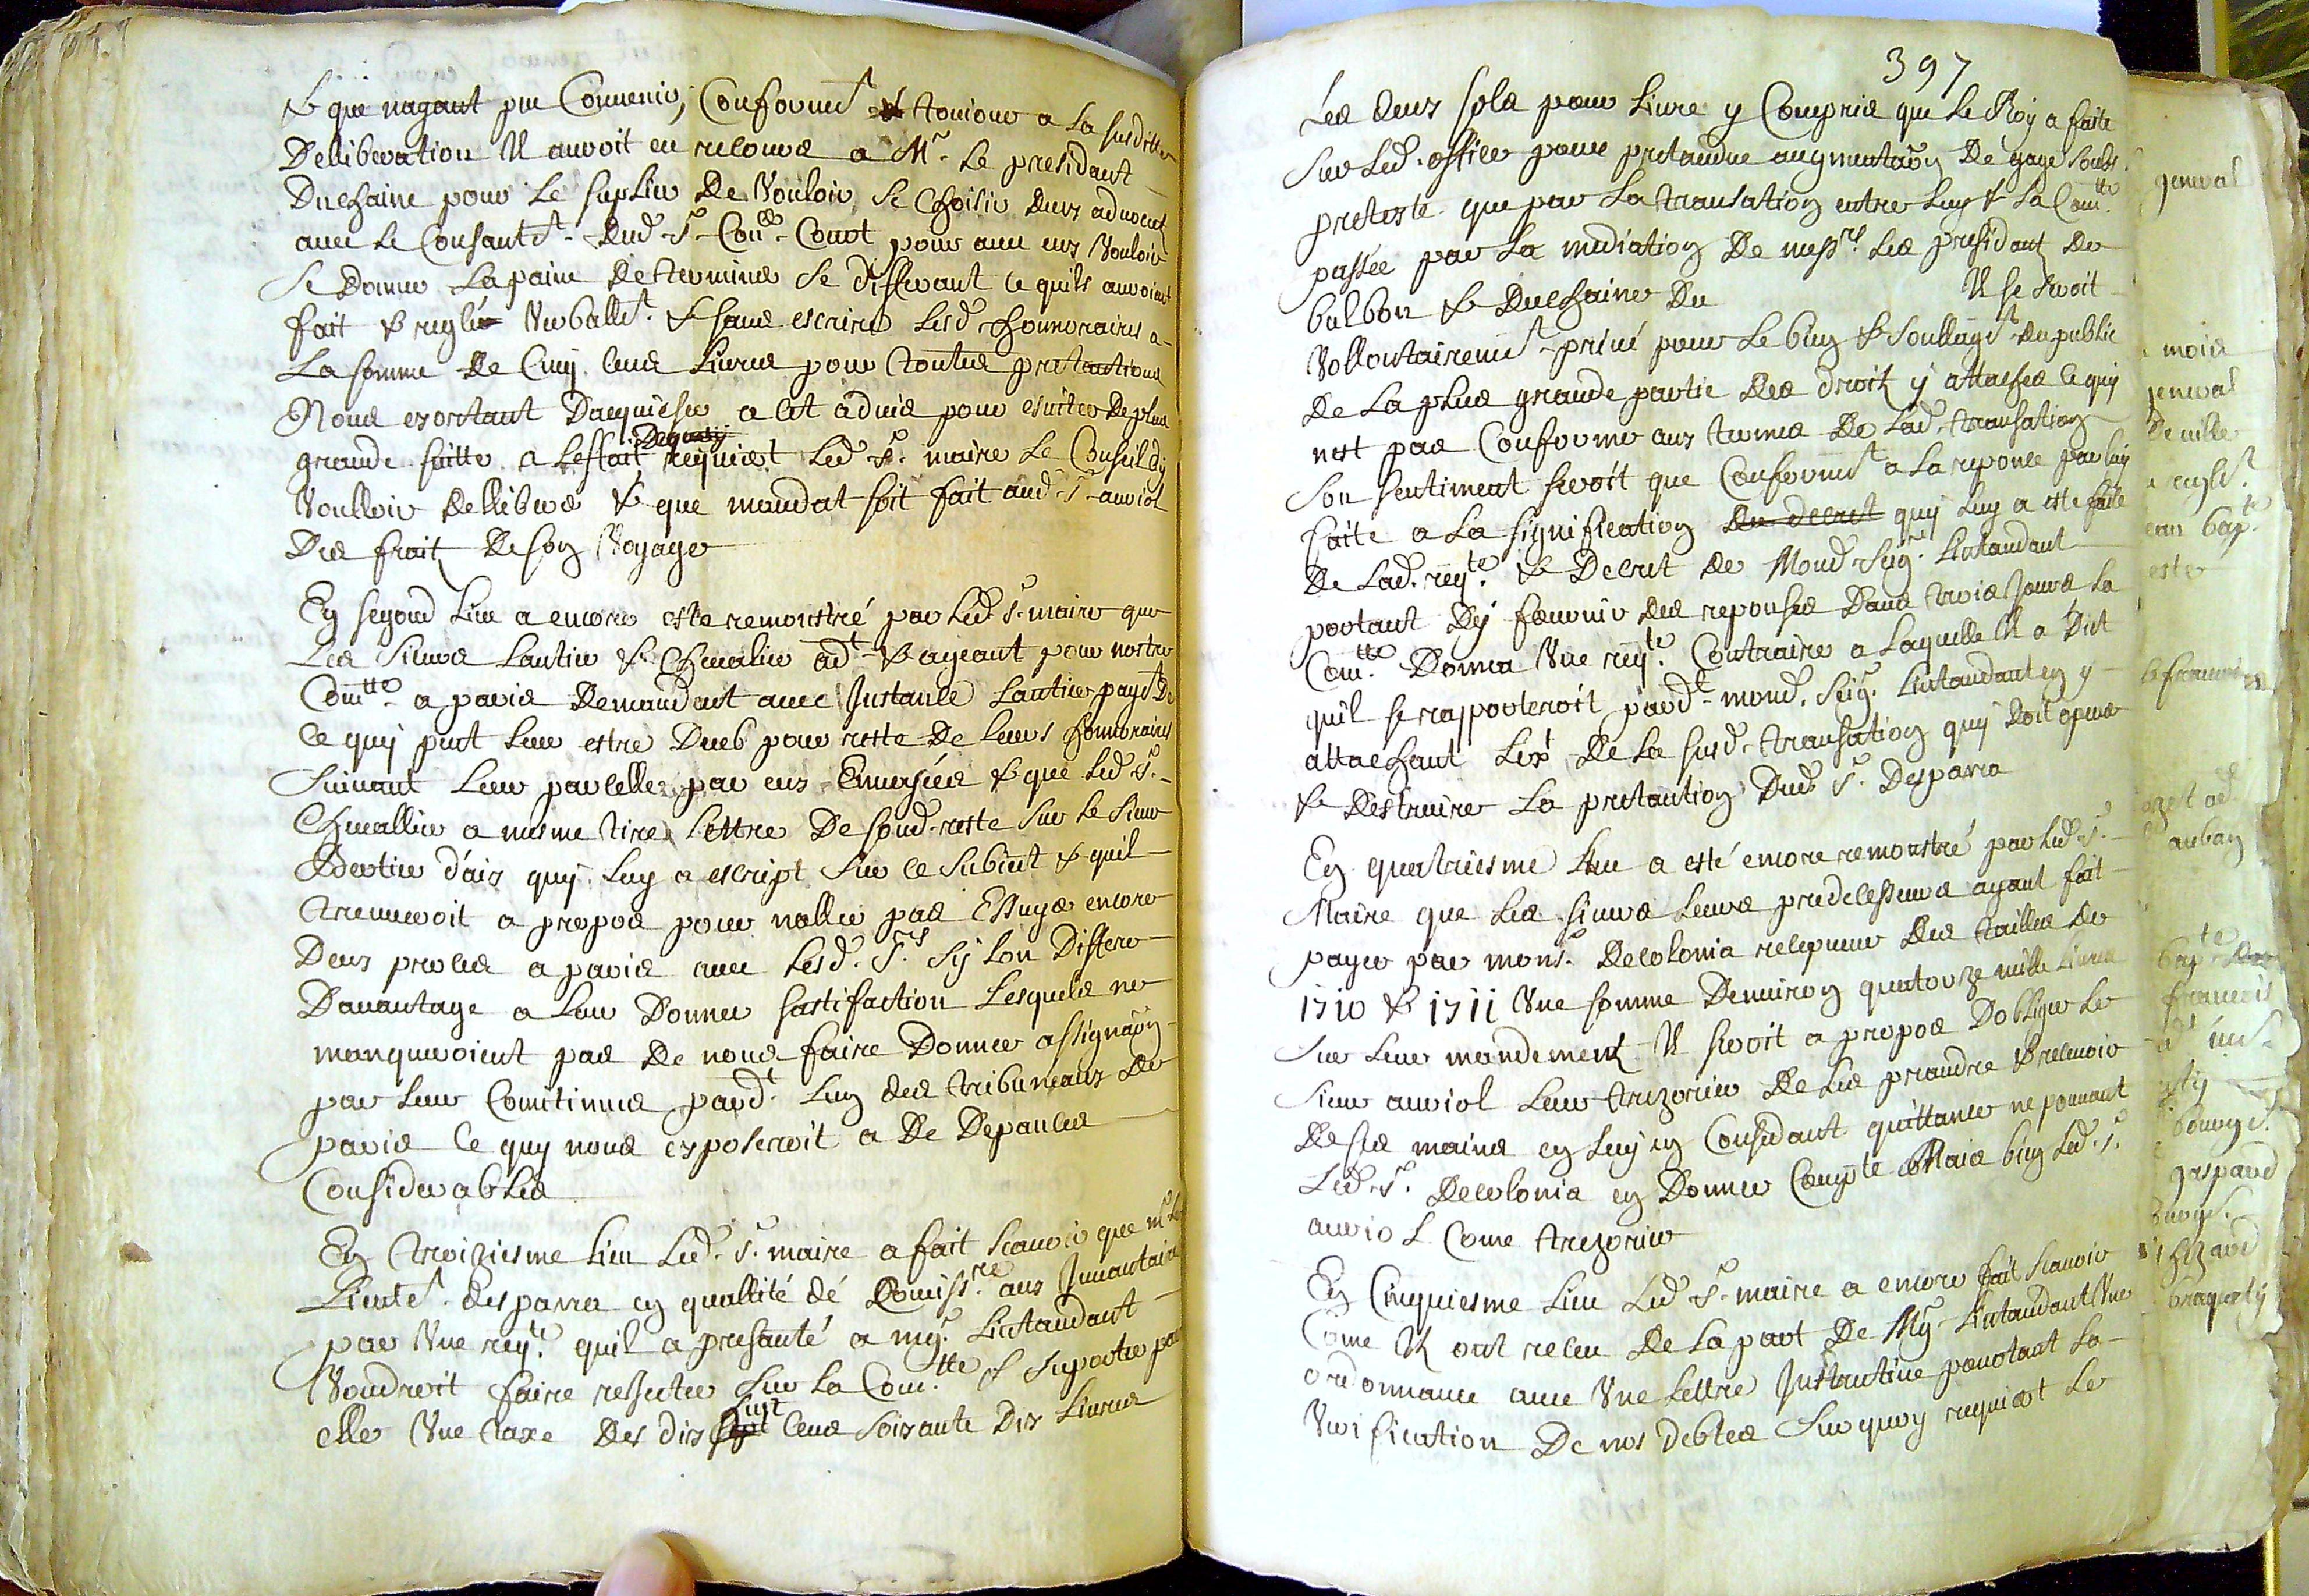 & que nayant peu Convenir, Conformt & toujour a la susditte
Delliberation Il auroit eu recours a Mr. Le presidant
Duchaine pour Le suplier De Vouloir se Choisir deux advocat
avec le Consantt. Dud. Sr. Conr. Court pour avec eux Vouloir
Se Donner La paine De terminer Le differant ce quils auroient
fait & reglé Verballt. & sans escrire Lesd. honnoraires a
La somme De Cinq cens Livres pour toutes pretantions
Nous exortant Dacquiesser a cet advis pour eviter De plus
grande suitte a Leffait Dequoy requiert Led. Sr. maire Le Conseil dy
Voulloir delliberer & que mandat soit fait aud. Sr. auriol
Des frait De son Voyage
En segond Lieu a encore este remonstré par Led. Sr. maire que
Les Sieurs Lantier & Chevalier adt. & ageant pour nostre
Comtte. a paris Demandent avec Instance Lantier payt. De
Ce quy peut leur estre Deub pour reste De leurs honnoraires
Suivant Leur parcelle par eux Envoyées & que Led. Sr.
Chevallier a mesme tire Lettre De son d. reste sur le Sieur
Bertier daix quy Luy a escript sur ce subiect & quil
treuveroit a propos pour naller pas Essuyer encore
Deux proces a paris avec Lesd. Srs. Sy Lon Differe
Davantage a Leur Donner sastifaction Lesquels ne
manqueroient pas De nous faire Donner assignaon
par Leur Comitimus pardt. Lun des tribuneaux De
paris Ce quy nous exposeroit a De Depances
Considerables
En troiziesme Lieu Led. Sr. maire a fait scavoir que mr. Le
Lieutt. desparra en quallité dé Comissre. aux Invantaire
par Une reqte. quil a presanté a mgr. Lintandant
Voudroit faire rejetter sur la Comtte. & suporter par
elle Une taxe Des dix sept huit cens soixante Dix Livres
397
Les deux sols pour Livre y Compris que Le Roy a faite
Sur Led. office pour pretandue augmentaon De gage soubs
preteste que par La transation entre Luy & La Comtte.
passée par La mediation De messrs. Les presidant De
bulbon & Duchaine Du Il se seroit
Vollontairemt. privé pour Le bien & soullagt. du public
De La plus grande partie des droit y attaches Ce quy
nest pas Conforme aux termes De Lad. transation
Son sentiment seroit que Conformt. a La reponce par luy
faite a La signification du decret quy Luy a este faite
De Lad. reqte. & Decret de Mond. Seigr. Lintandant
portant Dy fournir des reponses Dans trois Jours La
Comtte. Donna Une reqte. Contraire a Laquelle Il a Dict
quil se rapporteroit pardt. mond. Seigr. Lintandant en y
attachant Lext. De La susd. transation quy Doit operer
& Destruire La pretantion Dud. Sr. Desparra
En quatriesme Lieu a esté encore remonstré par Led. Sr.
Maire que Les sieurs Leurs predecesseurs ayant fait
payer par monsr. Decolonia recepveur Des tailles De
1710 & 1711 Une somme Denviron quatorze mille Livres
Sur Leur mandement Il seroit a propos Dobliger Le
Sieur auriol Leur trezorier De Les prandre & recevoir
De ses mains en Luy en Consedant quittance ne pouvant
Led. Sr. Decolonia en Donner Compte Mais bien Led. Sr.
auriol Come trezorier
En Cinquiesme Lieu Led. Sr. maire a encore fait scavoir
Come Il ont receu De La part De Mgr. Lintandant Une
ordonnance avec Une Lettre Instructive pourtant La
Verification De nos debtes Sur quoy requiert Le
general
mois
general
De ville
auban
francois
gaspard
braquety